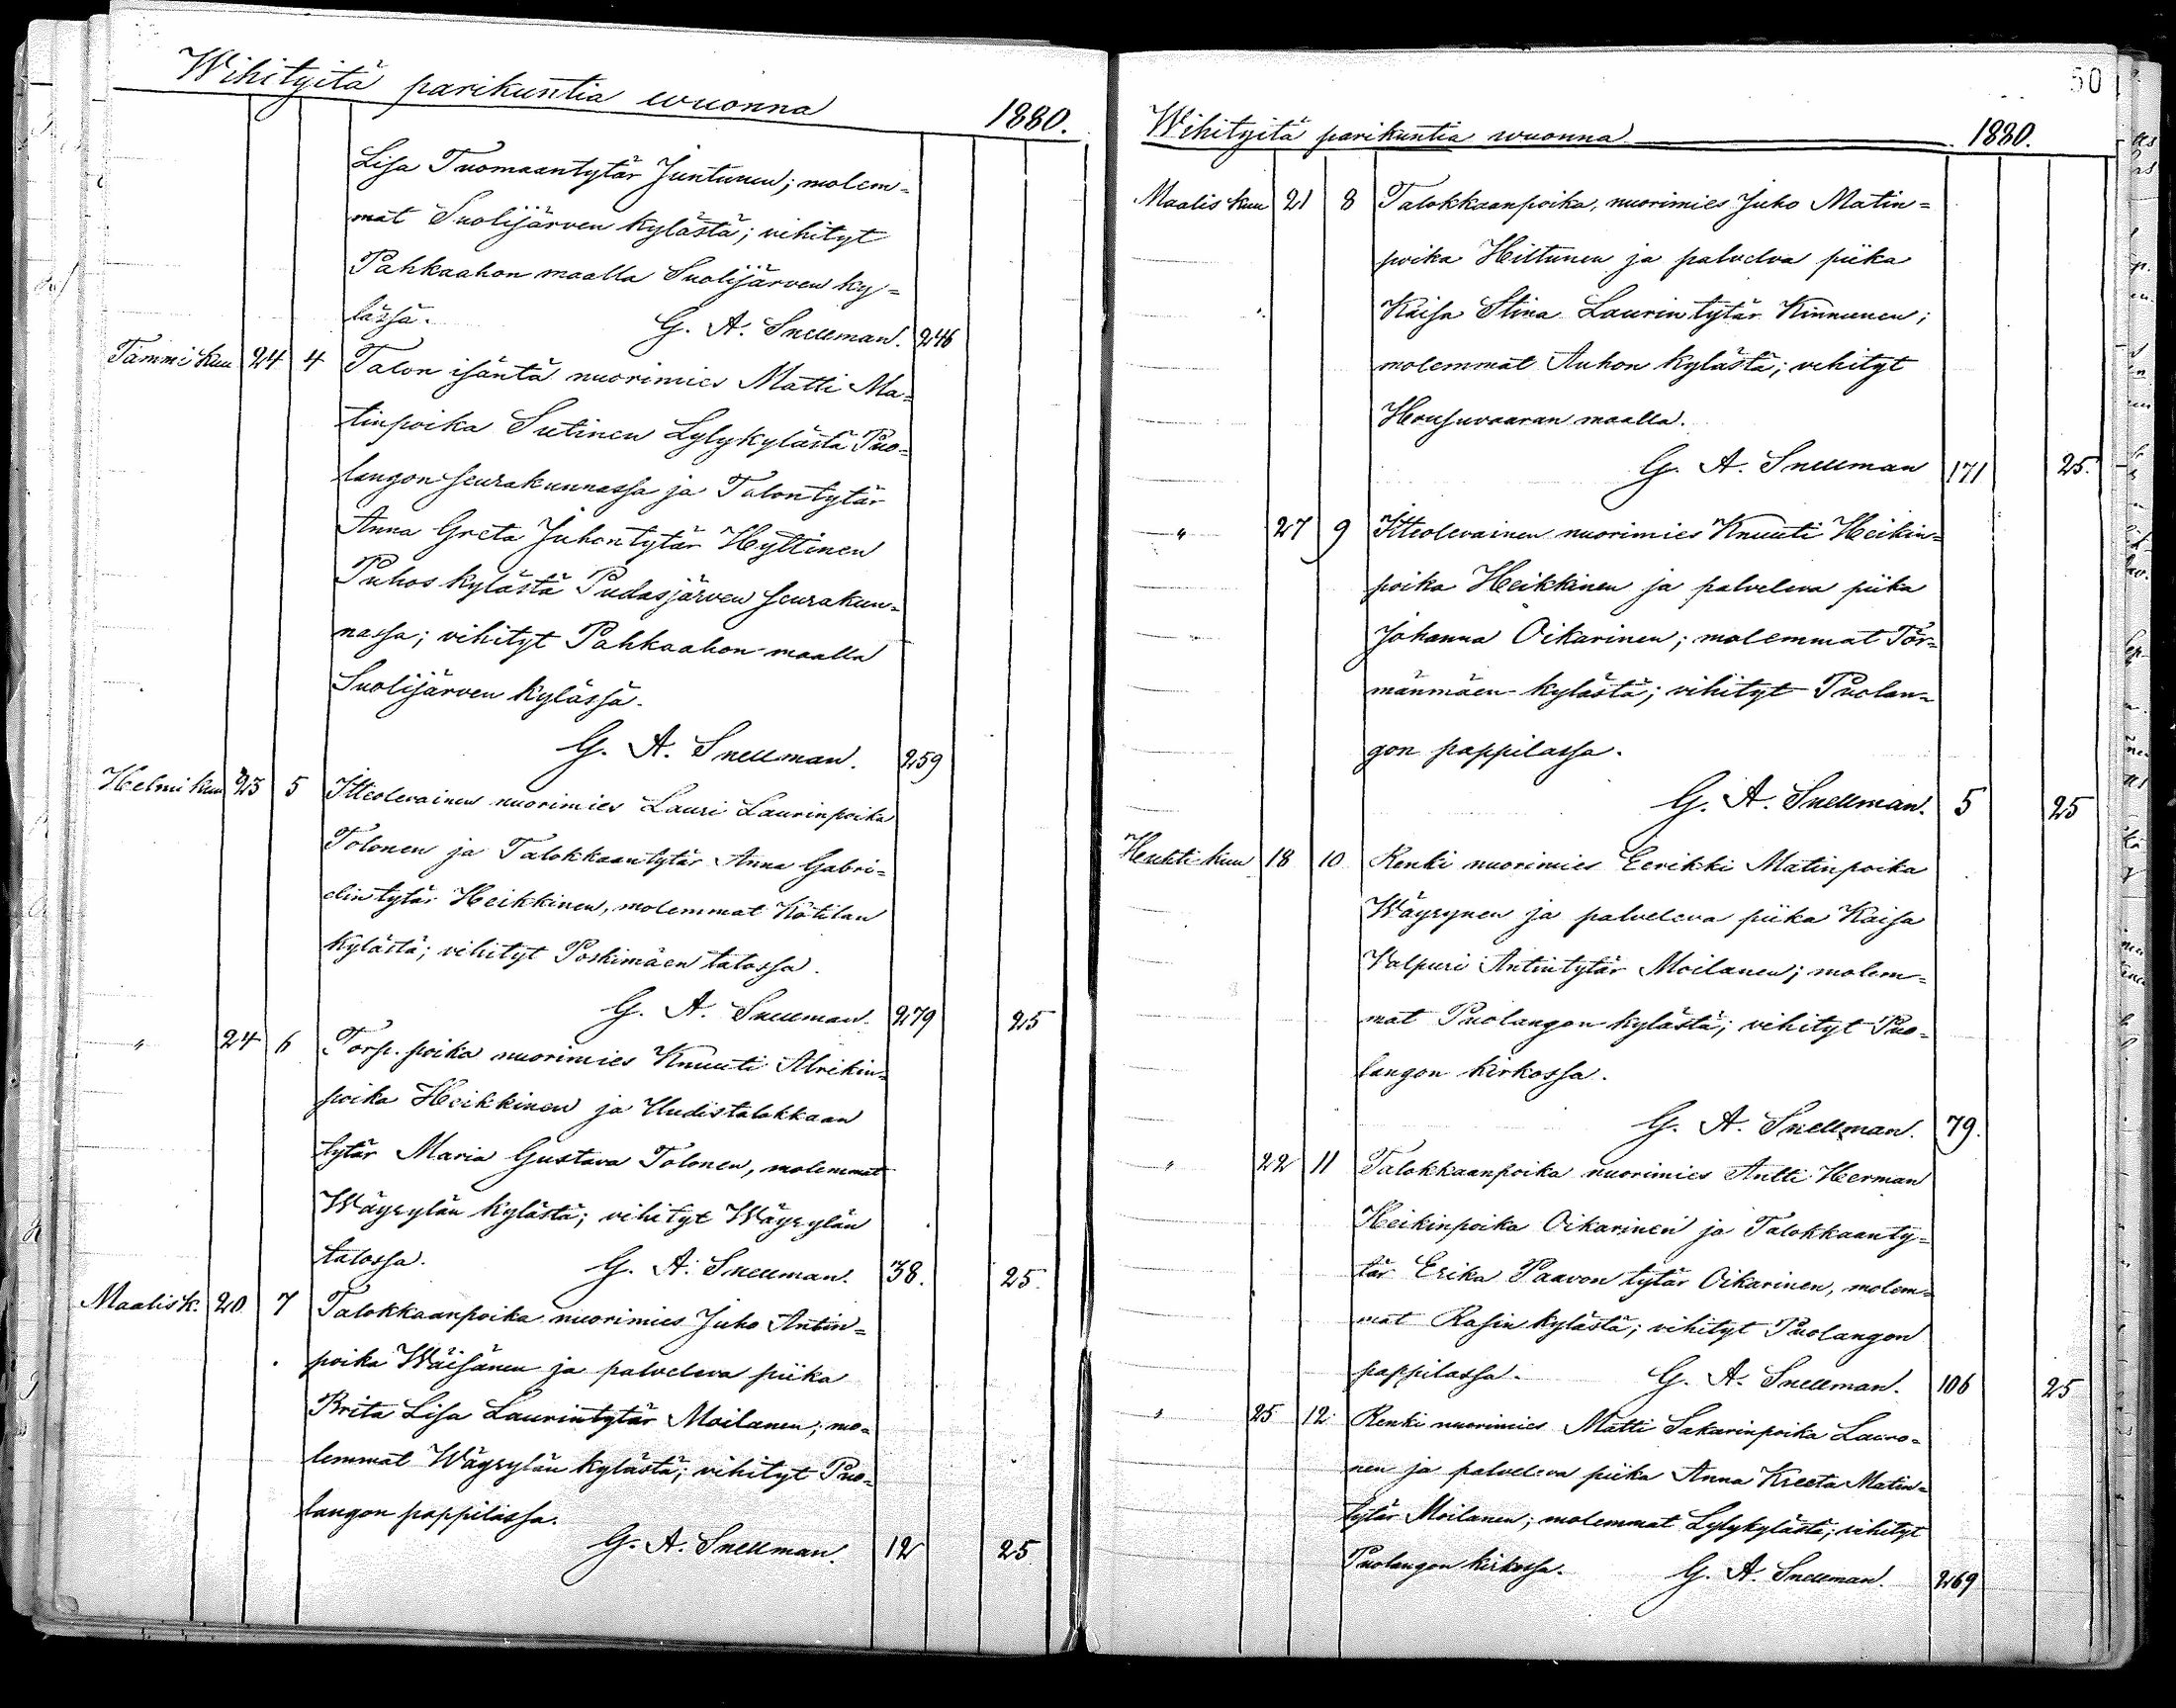 Wihityitä parikuntia wuonna 1880.
Lisa Tuomaantytär Juntunen; molem=
mat Suolijärven kylästä; vihityt
Pahkaahon maalla Suolijärven ky=
lässä. G. A. Snellman. 246
Tammi kuu 24 4 Talon isäntä nuorimies Matti Ma=
tinpoika Sutinen Lylykylästä Puo=
langon seurakunnassa ja Talontytär
Anna Greta Juhontytär Hyttinen
Puhos kylästä Pudasjärven seurakun=
nassa; vihityt Pahkaahon maalla
Suolijärven kylässä.
G. A. Snellman. 259
Helmi kuu 23 5 Itteolevainen nuorimies Lauri Laurinpoika
Tolonen ja Talokkaantytär Anna Gabri=
elin tytär Heikkinen, molemmat Kotilan
kylästä; vihityt Poskimäen talossa.
G. A. Snellman. 279 25
" 24 6 Torp. poika nuorimies Knuuti Abrikin=
poika Heikkinen ja Uudistalokkaan
tytär Maria Gustava Tolonen, molemmat
Wäyrylän kylästä; vihityt Wäyrylän
talossa. G. A. Snellman. 38. 25.
Maalisk. 20 7 Talokkaanpoika nuorimies Juho Antin=
poika Wäisänen ja palveleva piika
Brita Lisa Laurintytär Moilanen; mo=
lemmat Wäyrylän kylästä; vihityt Puo=
langon pappilassa.
G. A. Snellman. 12 25
50
Wihityitä parikuntia wuonna 1880.
Maalis kuu 21 8 Talokkaanpoika, nuorimies Juho Matin=
poika Hiltunen ja palvelva piika
Kaisa Stina Laurin tytär Kinnunen;
molemmat Auhon kylästä; vihityt
Housuvaaran maalla.
G. A. Snellman 171 25.
" 27 9 Itteolevainen nuorimies Knuuti Heikin=
poika Heikkinen ja palveleva piika
Johanna Oikarinen; molemmat Tör=
mänmäen kylästä; vihityt Puolan=
gon pappilassa.
G. A. Snellman. 5 25
Huhti kuu 18 10 Renki nuorimies Eerikki Matinpoika
Wäyrynen ja palveleva piika Kaisa
Valpuri Antintytär Moilanen; molem=
mat Puolangon kylästä; vihityt Puo=
langon kirkossa.
G. A. Snellman. 79.
" 22 11 Talokkaanpoika nuorimies Antti Herman
Heikinpoika Oikarinen ja Talokkaanty=
tär Erika Paavon tytär Oikarinen, molem=
mat Rasin kylästä; vihityt Puolangon
pappilassa. G. A. Snellman. 106 25
" 25 12 Renki nuorimies Matti Sakarinpoika Lauro=
nen ja palveleva piika Anna Kreeta Matin=
tytär Moilanen; molemmat Lylykylästä; vihityt
Puolangon kirkossa. G. A. Snellman. 269